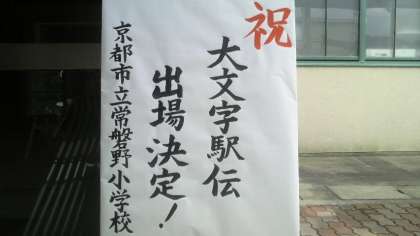 祝
大文字駅伝
出場決定!
京都市立常磐野小学校